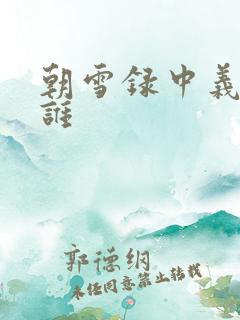 朝雪录中義
誰
郭德纲
未经同意禁止转载